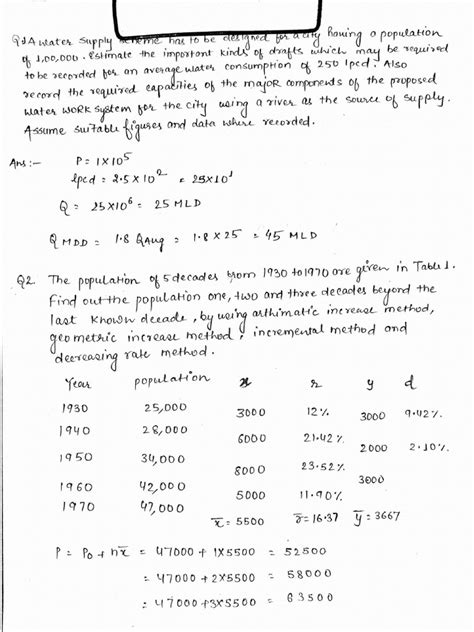 Q1 A water supply scheme has to be designed for a city having a population
of 1,00,000. Estimate the important kinds of drafts which may be required
to be recorded for an average water consumption of 250 lpcd. Also
record the required capacities of the major components of the proposed
water work system for the city using a river as the source of supply.
Assume suitable figures and data where recorded.
Ans:- P = 1×10⁵
lpcd = 2.5×10² = 25×10¹
Q = 25×10⁶ = 25 MLD
Q MDD = 1.8 QAvg = 1.8 × 25 = 45 MLD
Q2. The population of 5 decades from 1930 to 1970 are given in Table 1.
Find out the population one, two and three decades beyond the
last known decade, by using arthimatic increase method,
geometric increase method, incremental method and
decreasing rate method.
Year population x r y d
1930 25,000
3000 12% 3000 9.42%
1940 28,000
6000 21.42% 2000 2.10%
1950 34,000
8000 23.52% 3000
1960 42,000
5000 11.90%
1970 47,000
x̄ = 5500 r̄ = 16.37 ȳ = 3667
P = P₀ + nx̄ = 47000 + 1×5500 = 52500
= 47000 + 2×5500 = 58000
= 47000 + 3×5500 = 63500